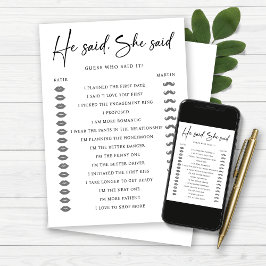 He said, She said
GUESS WHO SAID IT?
KATIE
MARTIN
I PLANNED THE FIRST DATE
I SAID "I LOVE YOU" FIRST
I PICKED THE ENGAGEMENT RING
I PROPOSED
I AM MORE ROMANTIC
I WEAR THE PANTS IN THE RELATIONSHIP
I'M PLANNING THE HONEYMOON
I'M THE BETTER DANCER
I'M THE FUNNY ONE
I'M THE BETTER DRIVER
I INITIATED THE FIRST KISS
I TAKE LONGER TO GET READY
I'M THE NEAT ONE
I'M MORE PATIENT
I LOVE TO SHOP MORE
He said, She said